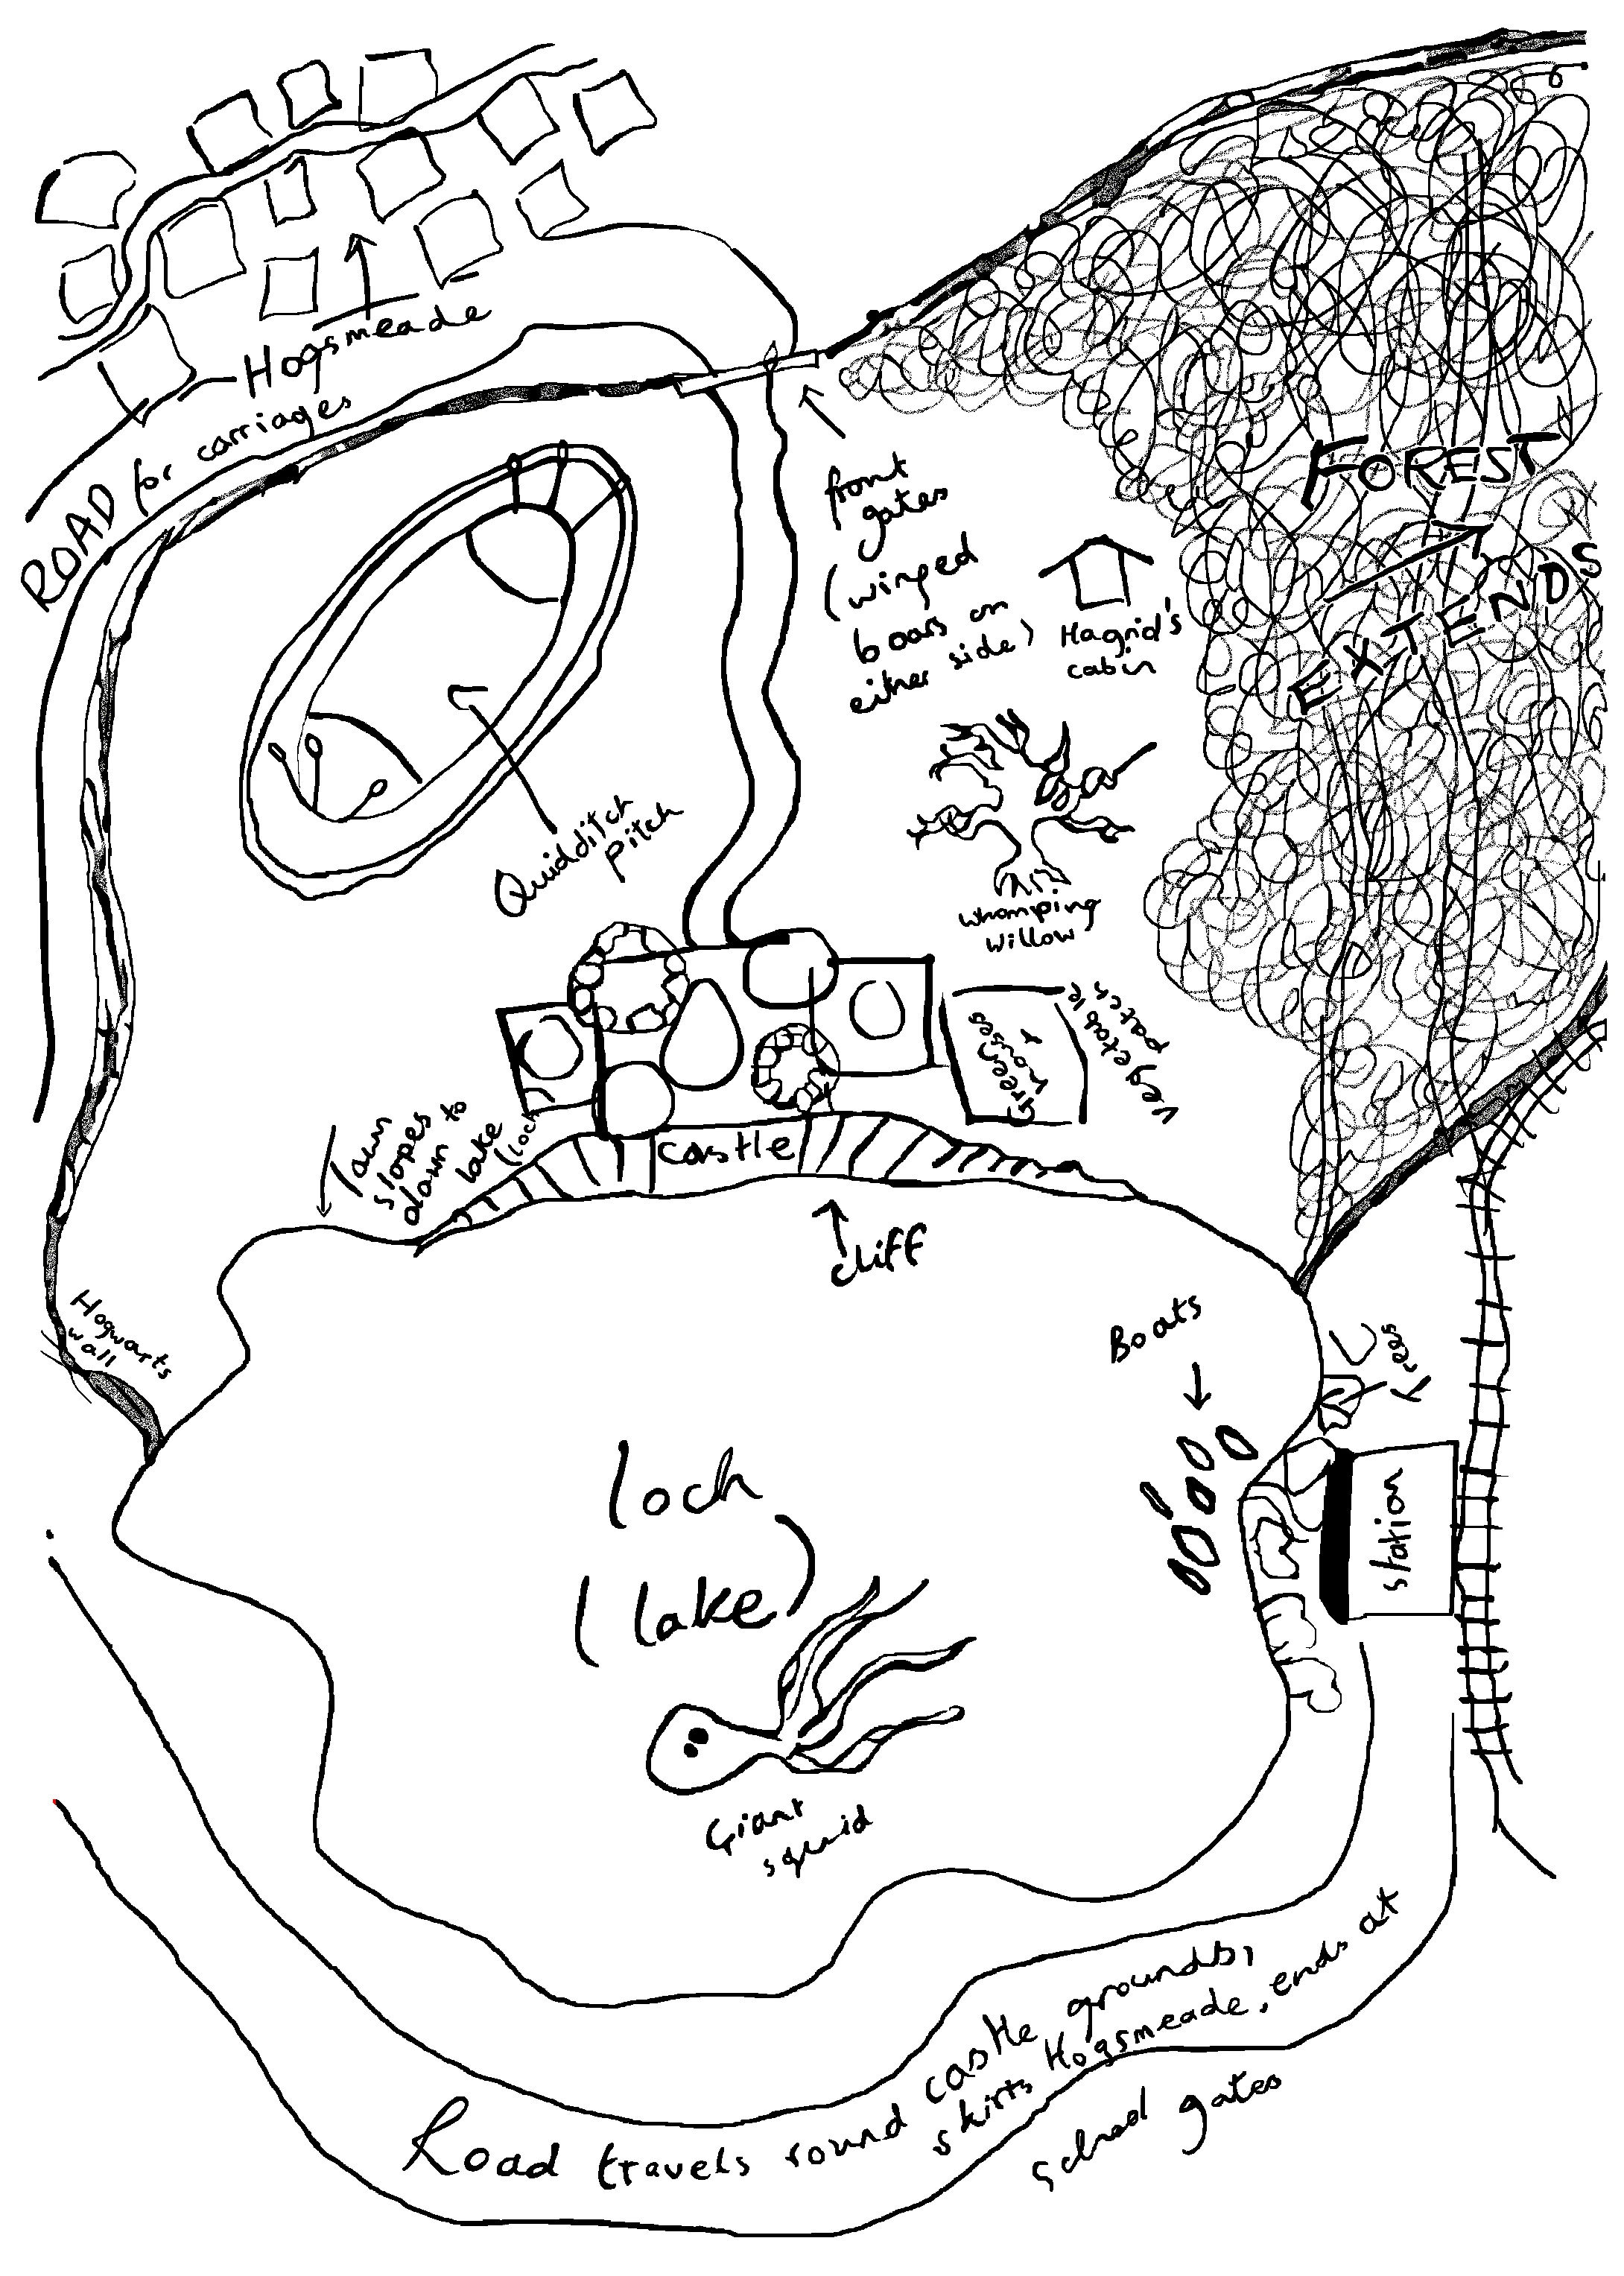 Hogsmeade
ROAD for carriages
FOREST
EXTENDS
front
gates
(winged
boars on
either side)
Hagrid's
cabin
Quidditch
pitch
Whomping
Willow
Green
houses
+
vegetable
patch
lawn
slopes
down to
lake
(loch
castle
cliff
Hogwarts
wall
Boats
trees
station
loch
(lake)
Giant
squid
Road travels round castle grounds,
skirts Hogsmeade, ends at
school gates